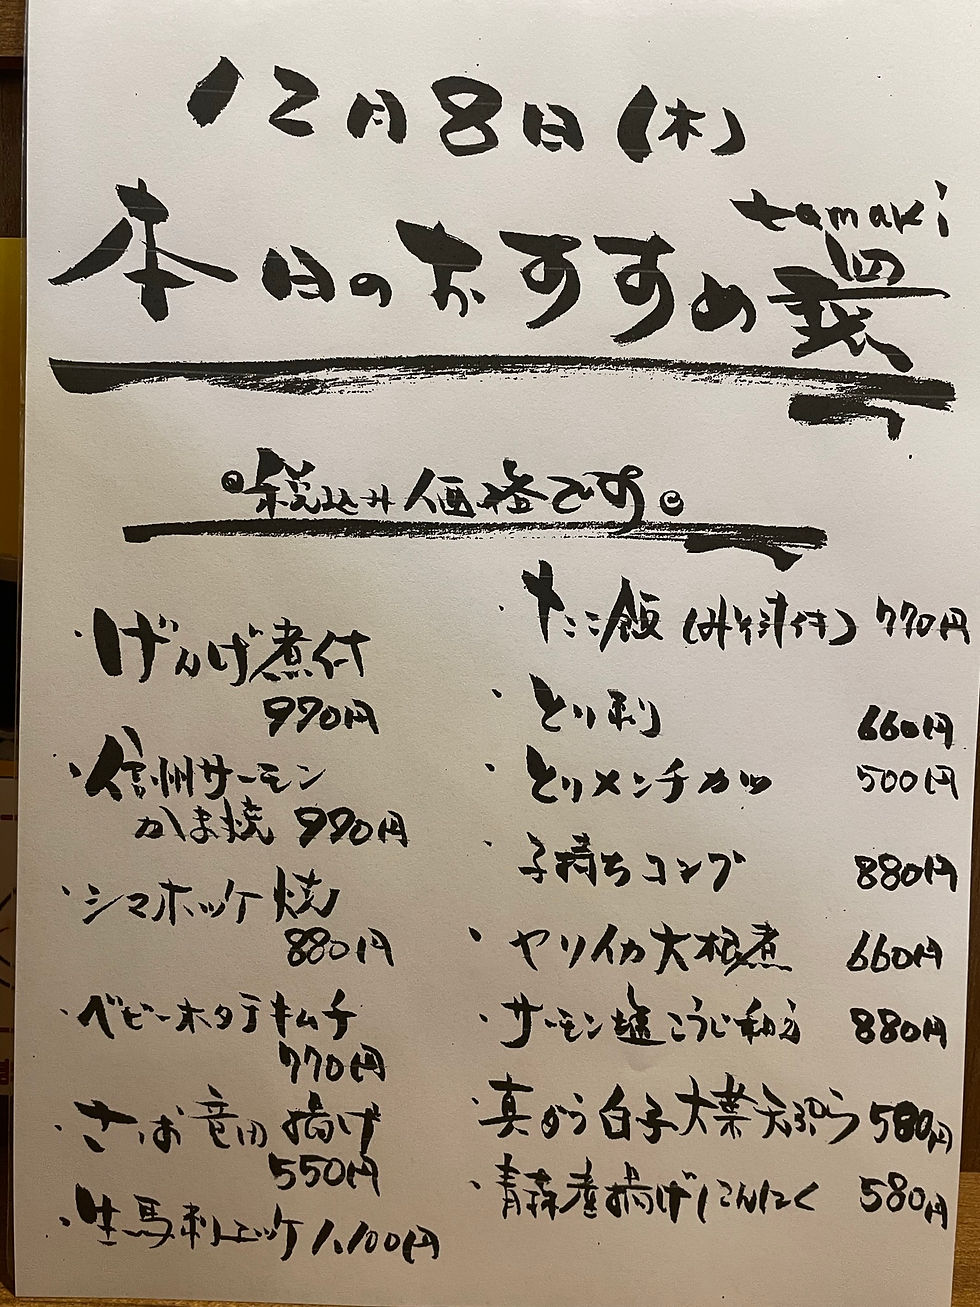 12月8日(木)
tamaki
本日のおすすめ 環
税込み価格です
・げんげ煮付
990円
・信州サーモン
かま焼 990円
・シマホッケ焼
880円
・ベビーホタテキムチ
770円
・さば竜田揚げ
550円
・生馬刺ユッケ 1,100円
・たこ飯(みそ汁付) 770円
・とり刺 660円
・とりメンチカツ 500円
・子持ちコンブ 880円
・ヤリイカ大根煮 660円
・サーモン塩こうじ和え 880円
・真だら白子大葉天ぷら 580円
・青森産揚げにんにく 580円